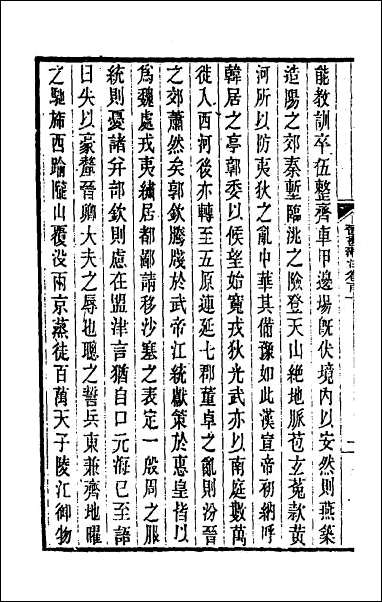 能教訓卒伍整齊車甲邊場旣伏境內以安然則燕築
造陽之郊秦塹臨洮之險登天山絕地脈苞玄菟款黃
河所以防夷狄之亂中華其備豫如此漢宣帝初納呼
韓居之亭鄣委以候望始寬戎狄光武亦以南庭數萬
徙入西河後亦轉至五原連延七郡董卓之亂則汾晉
之郊蕭然矣郭欽騰牋於武帝江統獻策於惠皇皆以
爲魏處戎夷繡居都鄙請移沙塞之表定一殷周之服
統則憂諸幷部欽則慮在盟津言猶自口元海已至語
曰失以豪釐晉卿大夫之辱也聰之誓兵東兼齊地曜
之馳旆西踰隴山覆沒兩京蒸徒百萬天子陵江御物